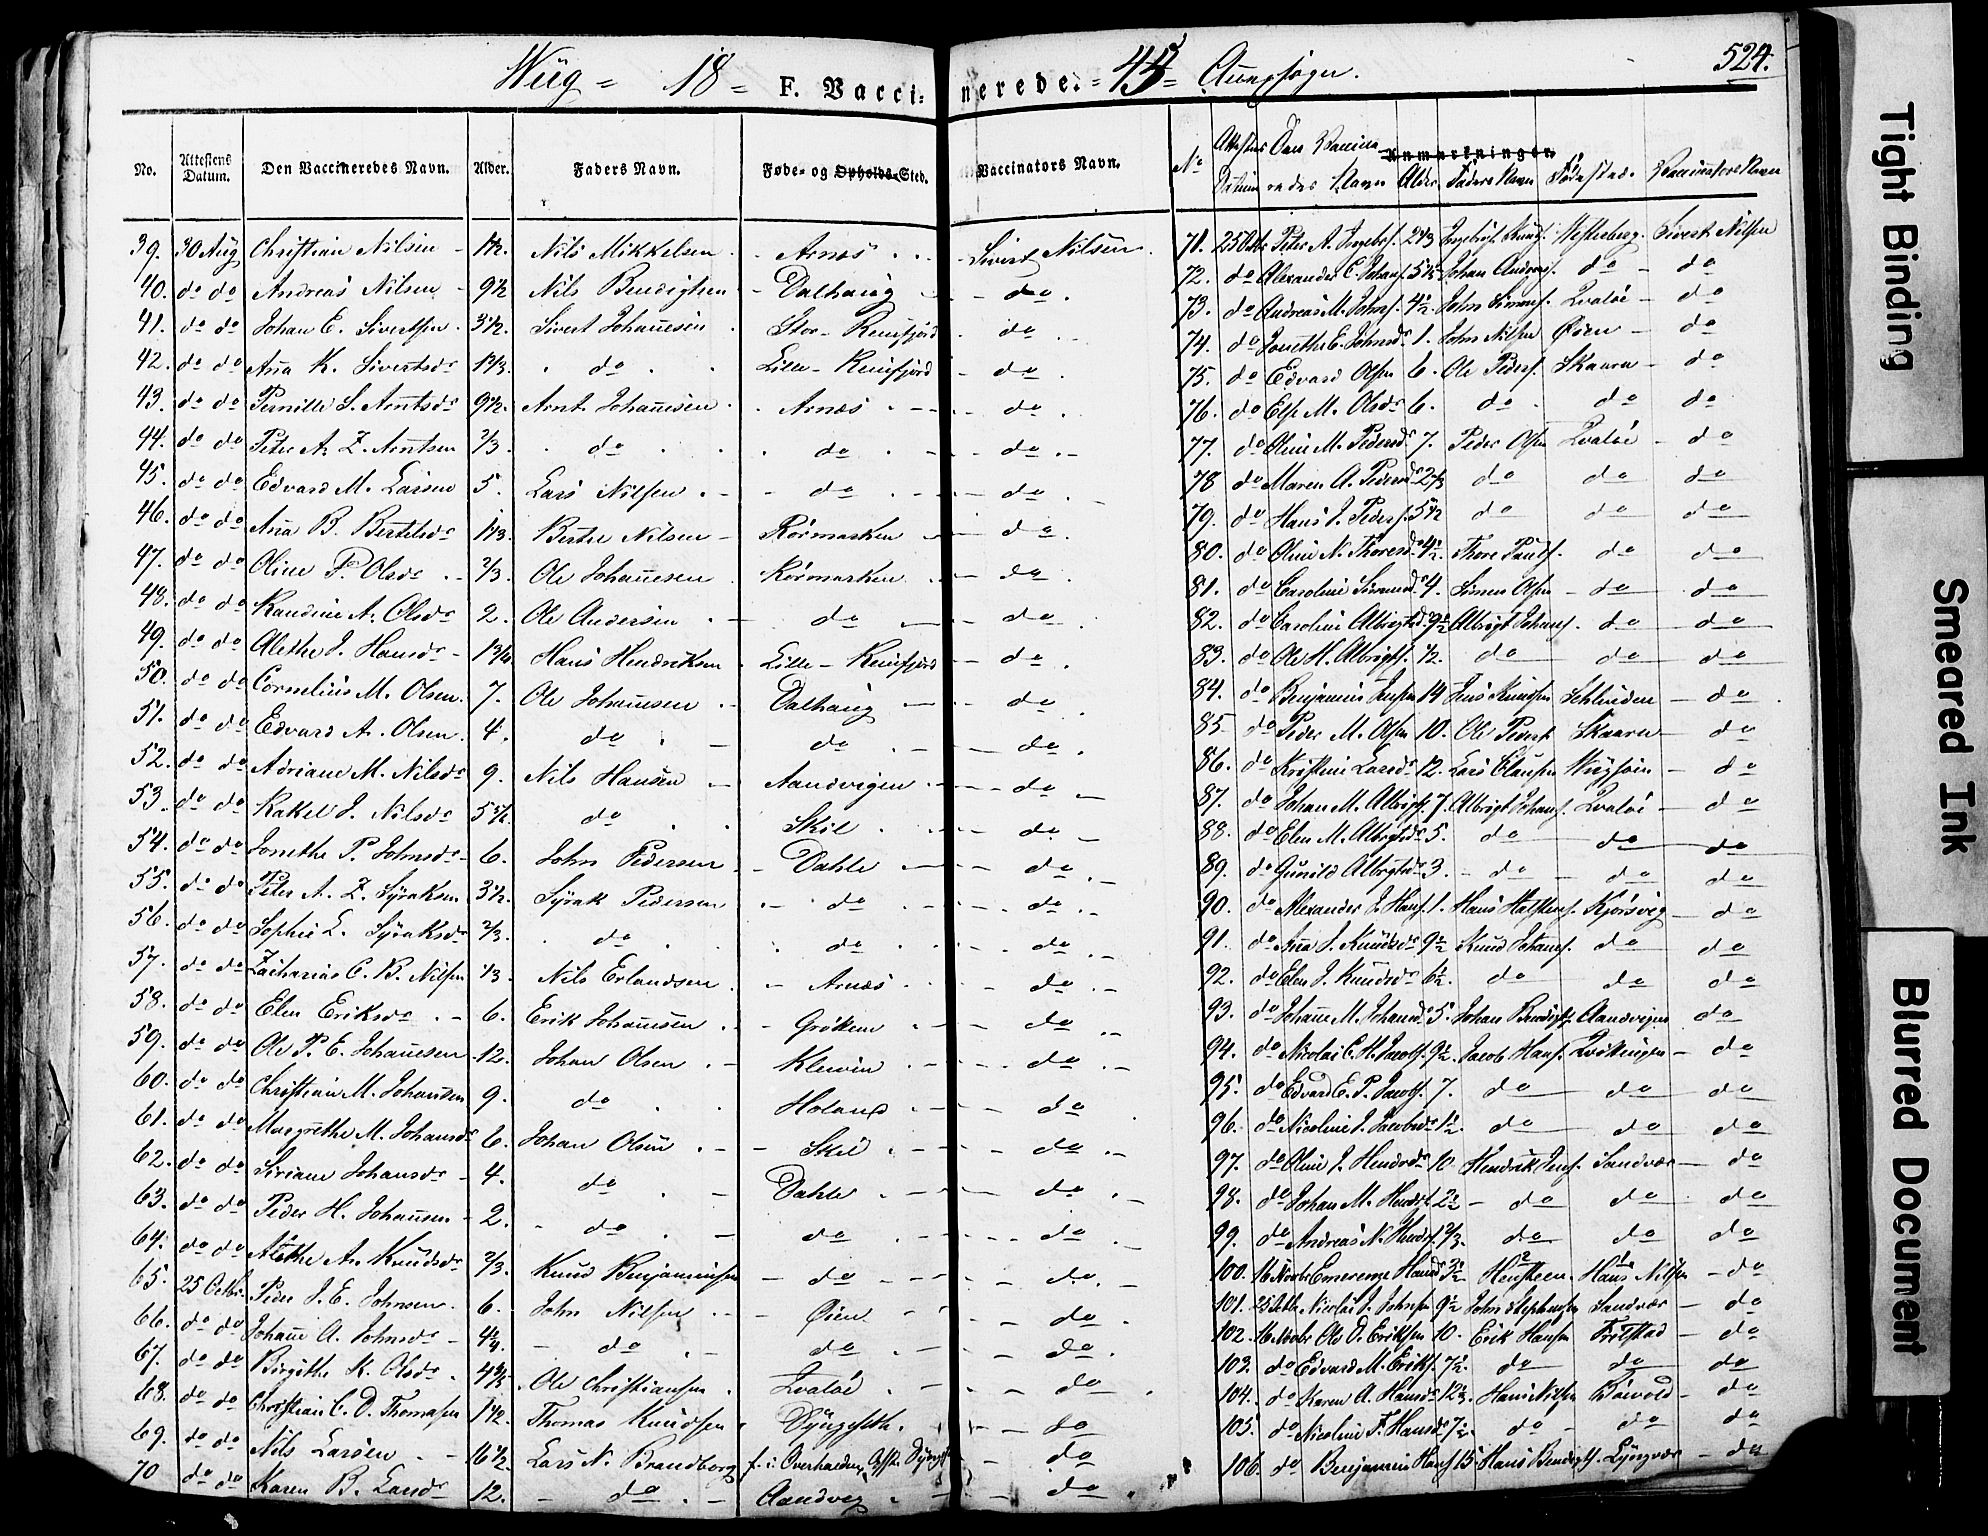 Wiig = 18 = F. Vaccinerede. = 45 = Annexsogn. 524.
No. Attestens Datum. Den Vaccineredes Navn. Alder. Faders Navn. Føde- og Opholds-Sted. Vaccinators Navn.
39. 30 Aug Christian Nilsen 1½. Nils Mikkelsen Arnæs Sivert Nilsen
40. do do Andreas Nilsen 9½ Nils Bendigtsen Dalhaug do
41. do do Johan E. Sivertsen 3½. Sivert Johannesen Stor-Reinfjord do
42. do do Ana K. Sivertsdr 1⅓. do Lille-Reinfjord do
43. do do Pernille S. Arntsdr 9½. Arnt Johannesen Arnæs do
44. do do Peter A. Z. Arntsen ⅔. do do do
45. do do Edvard M. Larsen 5. Lars Nilsen do do
46. do do Ana B. Bertelsdr 1⅓. Bertel Nilsen Rørmarken do
47. do do Oline P. Olsdr ⅔. Ole Johannesen Rørmarken do
48. do do Randine A. Olsdr 2. Ole Andersen do do
49. do do Alethe J. Hansdr Hans Hendriksen Lille-Reinfjord do
50. do do Cornelius M. Olsen. 7. Ole Johannesen Dalhaug do
51. do do Edvard A. Olsen. 4. do do do
52. do do Adriane M. Nilsdr 9. Nils Hansen Aandvigen do
53. do do Rakel J. Nilsdr 5½. do Skei do
54. do do Jonethe P. Johnsdr 6. John Pedersen Dahle do
55. do do Peter A. Z. Syraksen 3½. Syrak Pedersen do do
56. do do Sophie L. Syraksdr ⅔. do do do
57. do do Zacharias C. B. Nilsen ⅓. Nils Erlandsen Arnæs do
58. do do Elen Eriksdr 6. Erik Johannesen do
59. do do Ole P. E. Johannesen 12. Johan Olsen Kleivin do
60. do do Christian M. Johansen 9. do Holand do
61. do do Margrethe M. Johansdr 6. Johan Olsen Skei do
62. do do Siriane Johansdr 4. do Dahle do
63. do do Peder H. Johansen 2. do do do
64. do do Alethe A. Knudsdr ⅔. Knud Benjaminsen do do
65. 25 Octbr. Peder J. E. Johnsen 6. John Nilsen Øien do
66. do do Johanne A. Johnsdr do do do
67. do do Birgithe K. Olsdr Ole Christiansen Qvaløe do
68. do do Christian C. D. Thomasen 1½. Thomas Knudsen do
69. do do Nils Larsen 16½. Lars N. Brandborg f. i Overhalden, do
70 do do Karen B. Larsdr 12. do Aandveg do
No Attestens Datum Den Vaccineredes Navn Alder Anmærkninger. Faders Navn Fødested. Vaccinatorens Navn
71. 25 Octbr Peter A. Ingebr. 2⅔ Ingebrigt Knuds. Hesteberg. Sivert Nilsen
72. do Alexander C. Johans. Johan Anders. do do
73. do Andreas M. Johns. 4½. John Simons. Qvaløe do
74. do Jonethe E. Johnsdr 1. John Nilsen Øien do
75. do Edvard Olsen 6. Ole Peders. Skaaren do
76. do Else M. Olsdr 6. do do do
77. do Oline M. Pedersdr 7. Peder Olsen Qvaløe do
78 do Maren A. Pedersdr 2⅔ do do do
79. do Hans J. Peders. 5½ do do do
80. do Oline N. Thoresdr 4½. Thore Pauls. do do
81. do Caroline Simonsdr 4. Simon Olsen do do
82. do Caroline Albrigtsdr 9½ Albrigt Johans. do do
83. do Ole H. Albrigts. ½. do do do
84. do Benjamin Jensen 14 Jens Knudsen do
85 do Peder M. Olsen 10. Ole Peders. Skaaren do
86. do Kristine Larsdr 12. Lars Clausen do
87. do Johan M. Albrigts. 7. Albrigt Johans. Qvaløe do
88. do Elen M. Albrigtsdr 5. do do do
89. do Gunild Albrigtsdr 3. do do do
90. do Alexander J. Hans. 1. Hans Halstens. Kjørsvig do
91. do Ana J. Knudsdr 9½ Knud Johans. do do
92. do Elen J. Knudsdr 6½. do do do
93. do Johanne M. Johansdr 5. Johan Bendigts. Aandvigen do
94. do Nicolai C. H. Jacobs. 9½. Jacob Hans. do
95. do Edvard E. P. Jacobs. 7. do do do
96. do Nicoline J. Jacobsdr 1½. do do do
97. do Oline J. Hendrdr 10 Hendrik Jens. Sandvær do
98. do Johan M. Hendr. do do do
99. do Andreas N. Hendr. ⅔. do do do
100. 16 Novbr Emerense Hansdr Hensteen Hans Nilsen do
101. 25 Octbr Nicolai J. Johnsen 9½ John Stephansen Sandvær do
102. 16 Novbr Ole D. Eriksen 10. Erik Hansen do
103. do Edvard M. Eriks. 7½. do do do
104. do Karen A. Hansdr 12½. Hans Nilsen do
105. do Nicoline F. Hansdr 7½. do do do
106. do Benjamin Hans. 15 Hans Bendigts. Lyngvær do
Tight Binding
Smeared Ink
Blurred Document